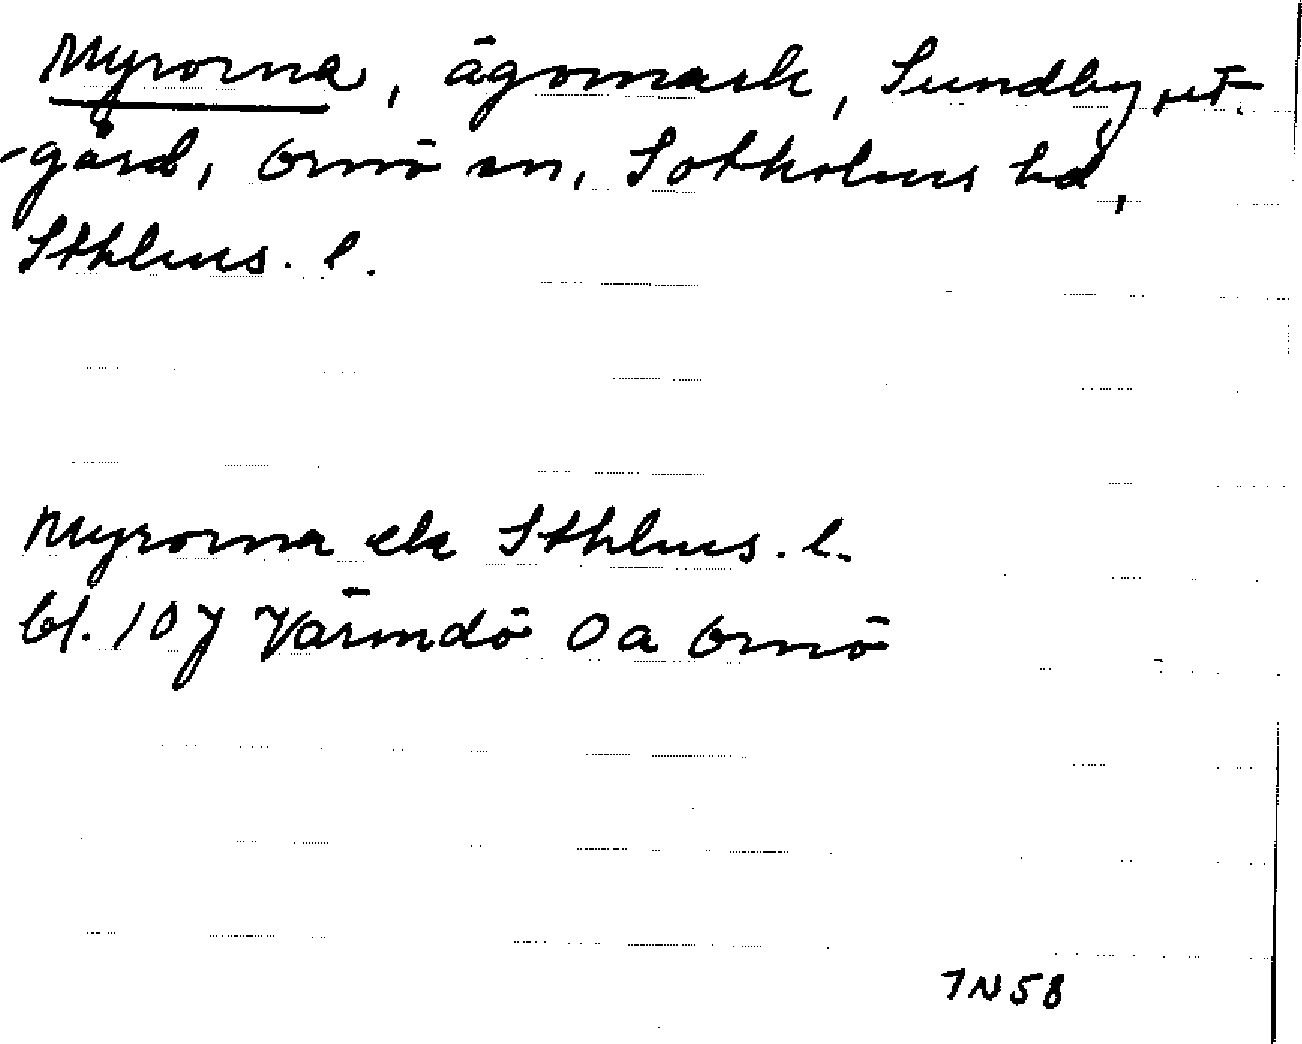 Myrorna, ägomark, Sundby, ut-
-gård, Ornö sn, Sotholms hd,
Sthlms. l.
Myrorna ek Sthlms. l.
bl. 107 Värmdö Oa Ornö
7N5B